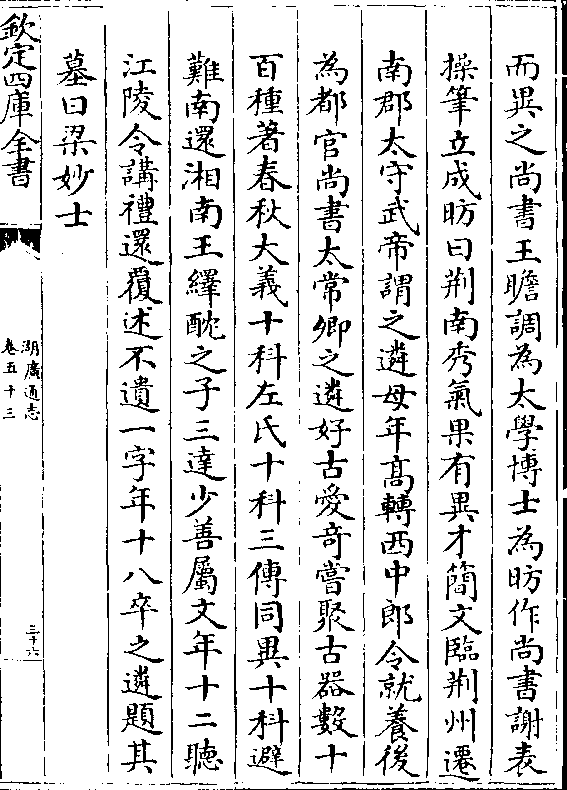 而異之尚書王瞻調為太學博士為昉作尚書謝表
操筆立成昉曰荆南秀氣果有異才簡文臨荆州遷
南郡太守武帝謂之遴母年高轉西中郎令就養後
為都官尚書太常卿之遴好古愛竒嘗聚古器數十
百種著春秋大義十科左氏十科三傳同異十科避
難南還湘南王繹酖之子三達少善屬文年十二聽
江陵令講禮還覆述不遺一字年十八卒之遴題其
墓曰梁妙士
欽定四庫全書
湖廣通志
卷五十三
三十六